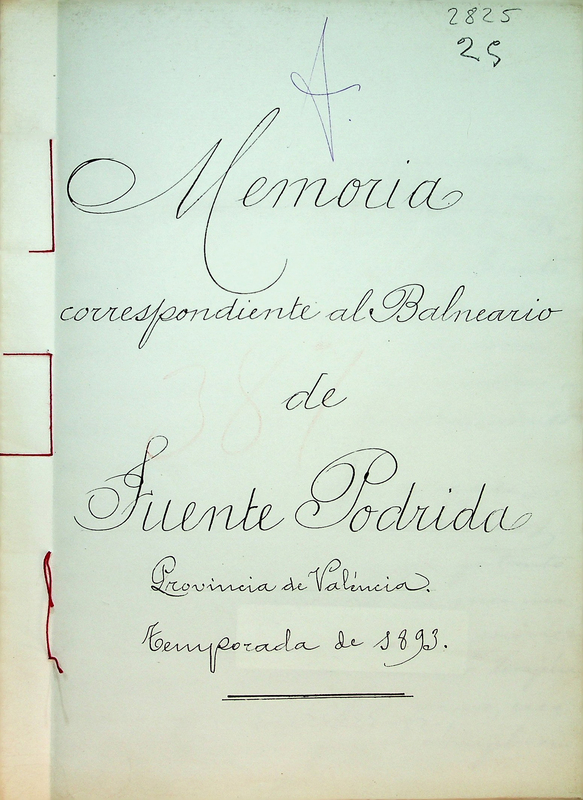 2825
25
A.
Memoria
correspondiente al Balneario
de
Fuente Podrida
Provincia de Valéncia.
Temporada de 1893.